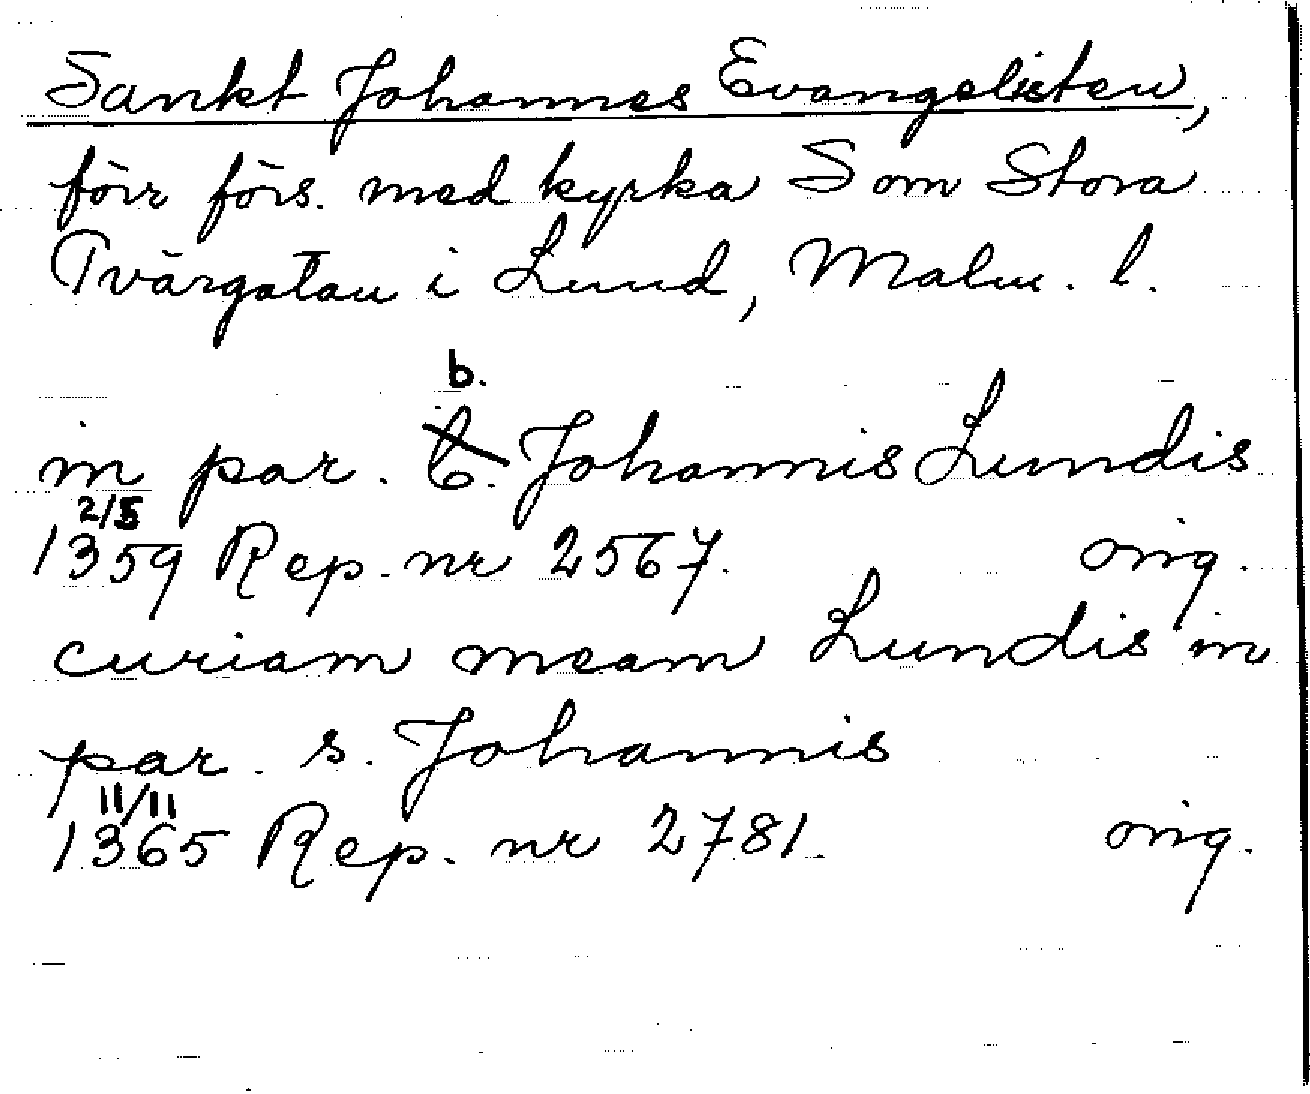 Sankt Johannes Evangelisten,
förr förs. med kyrka S om Stora
Tvärgatan i Lund, Malm. l.
b.
in par. b. Johannis Lundis
2/5
1359 Rep. nr 2567. orig.
curiam meam Lundis in
par. s. Johannis
11/11
1365 Rep. nr 2781. orig.